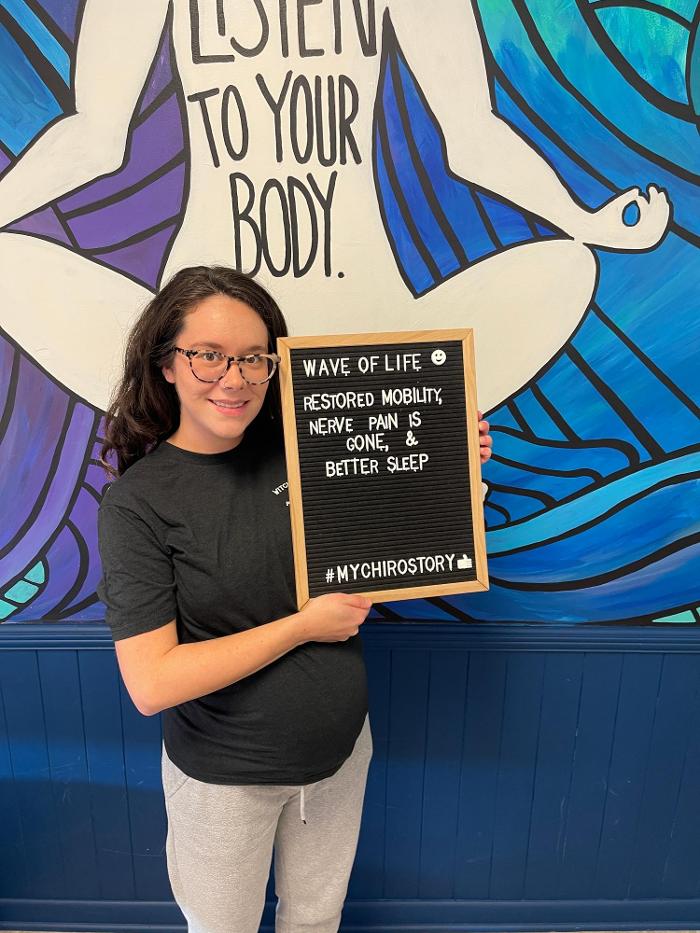 LISTEN
TO YOUR
BODY.
WAVE OF LIFE
RESTORED MOBILITY,
NERVE PAIN IS
GONE, &
BETTER SLEEP
#MYCHIROSTORY